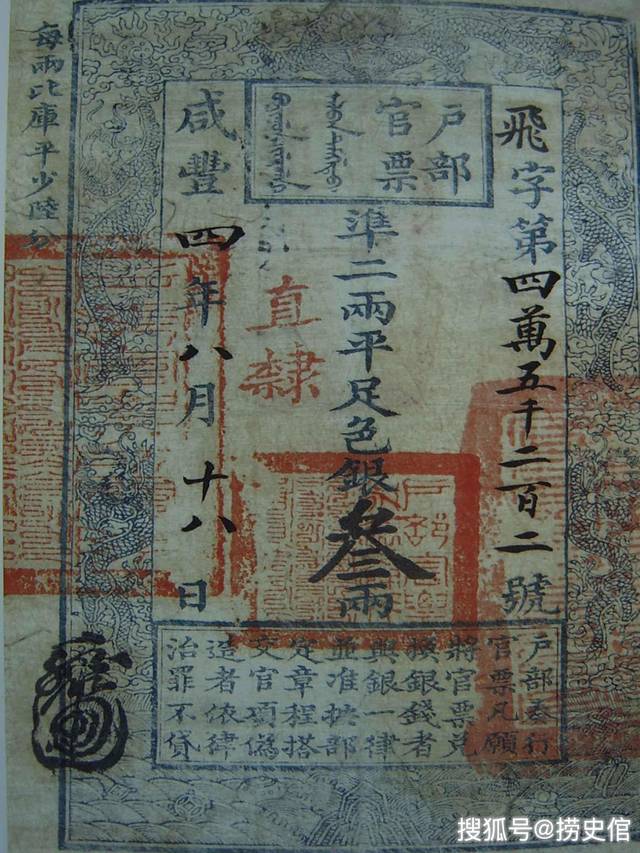 飛字第四萬五千二百二號
戶部
官票
準二兩平足色銀叁兩
直隸
咸豐四年八月十八日
每兩比庫平少陸分
戶部奏行
官票凡願
將官票兌
換銀錢者
與銀一律
並准按部
定章程搭
交官項偽
造者依律
治罪不貸
搜狐号@捞史馆